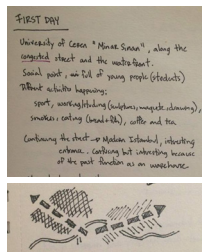 FIRST DAY
University of Ceren "Mimar Sinan", along the
congested street and the waterfront.
Social point, air full of young people (students)
Different activities happening:
sport, working/studying (sculptures, maquete, drawing),
smokers, eating (bread + fish), coffee and tea
Continuing the street → Modern Istanbul, interesting
entrance. confusing but interesting because
of the past function as an warehouse